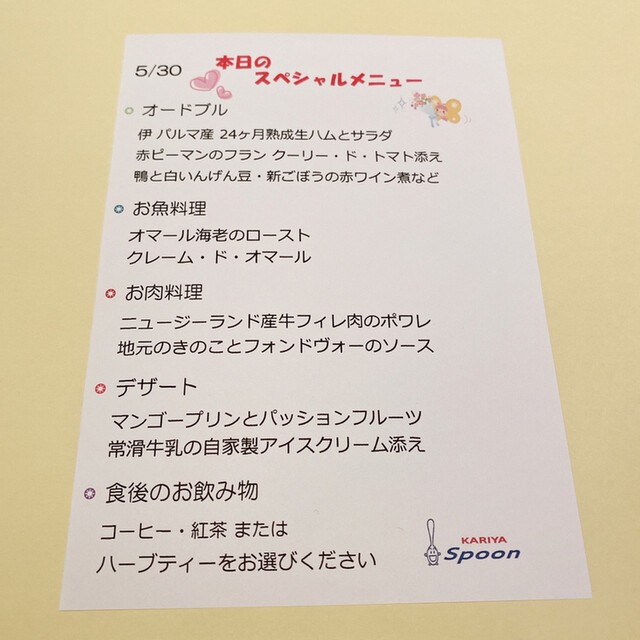 5/30
本日の
スペシャルメニュー
オードブル
伊 パルマ産 24ヶ月熟成生ハムとサラダ
赤ピーマンのフラン クーリー・ド・トマト添え
鴨と白いんげん豆・新ごぼうの赤ワイン煮など
お魚料理
オマール海老のロースト
クレーム・ド・オマール
お肉料理
ニュージーランド産牛フィレ肉のポワレ
地元のきのことフォンドヴォーのソース
デザート
マンゴープリンとパッションフルーツ
常滑牛乳の自家製アイスクリーム添え
食後のお飲み物
コーヒー・紅茶 または
ハーブティーをお選びください
KARIYA
Spoon